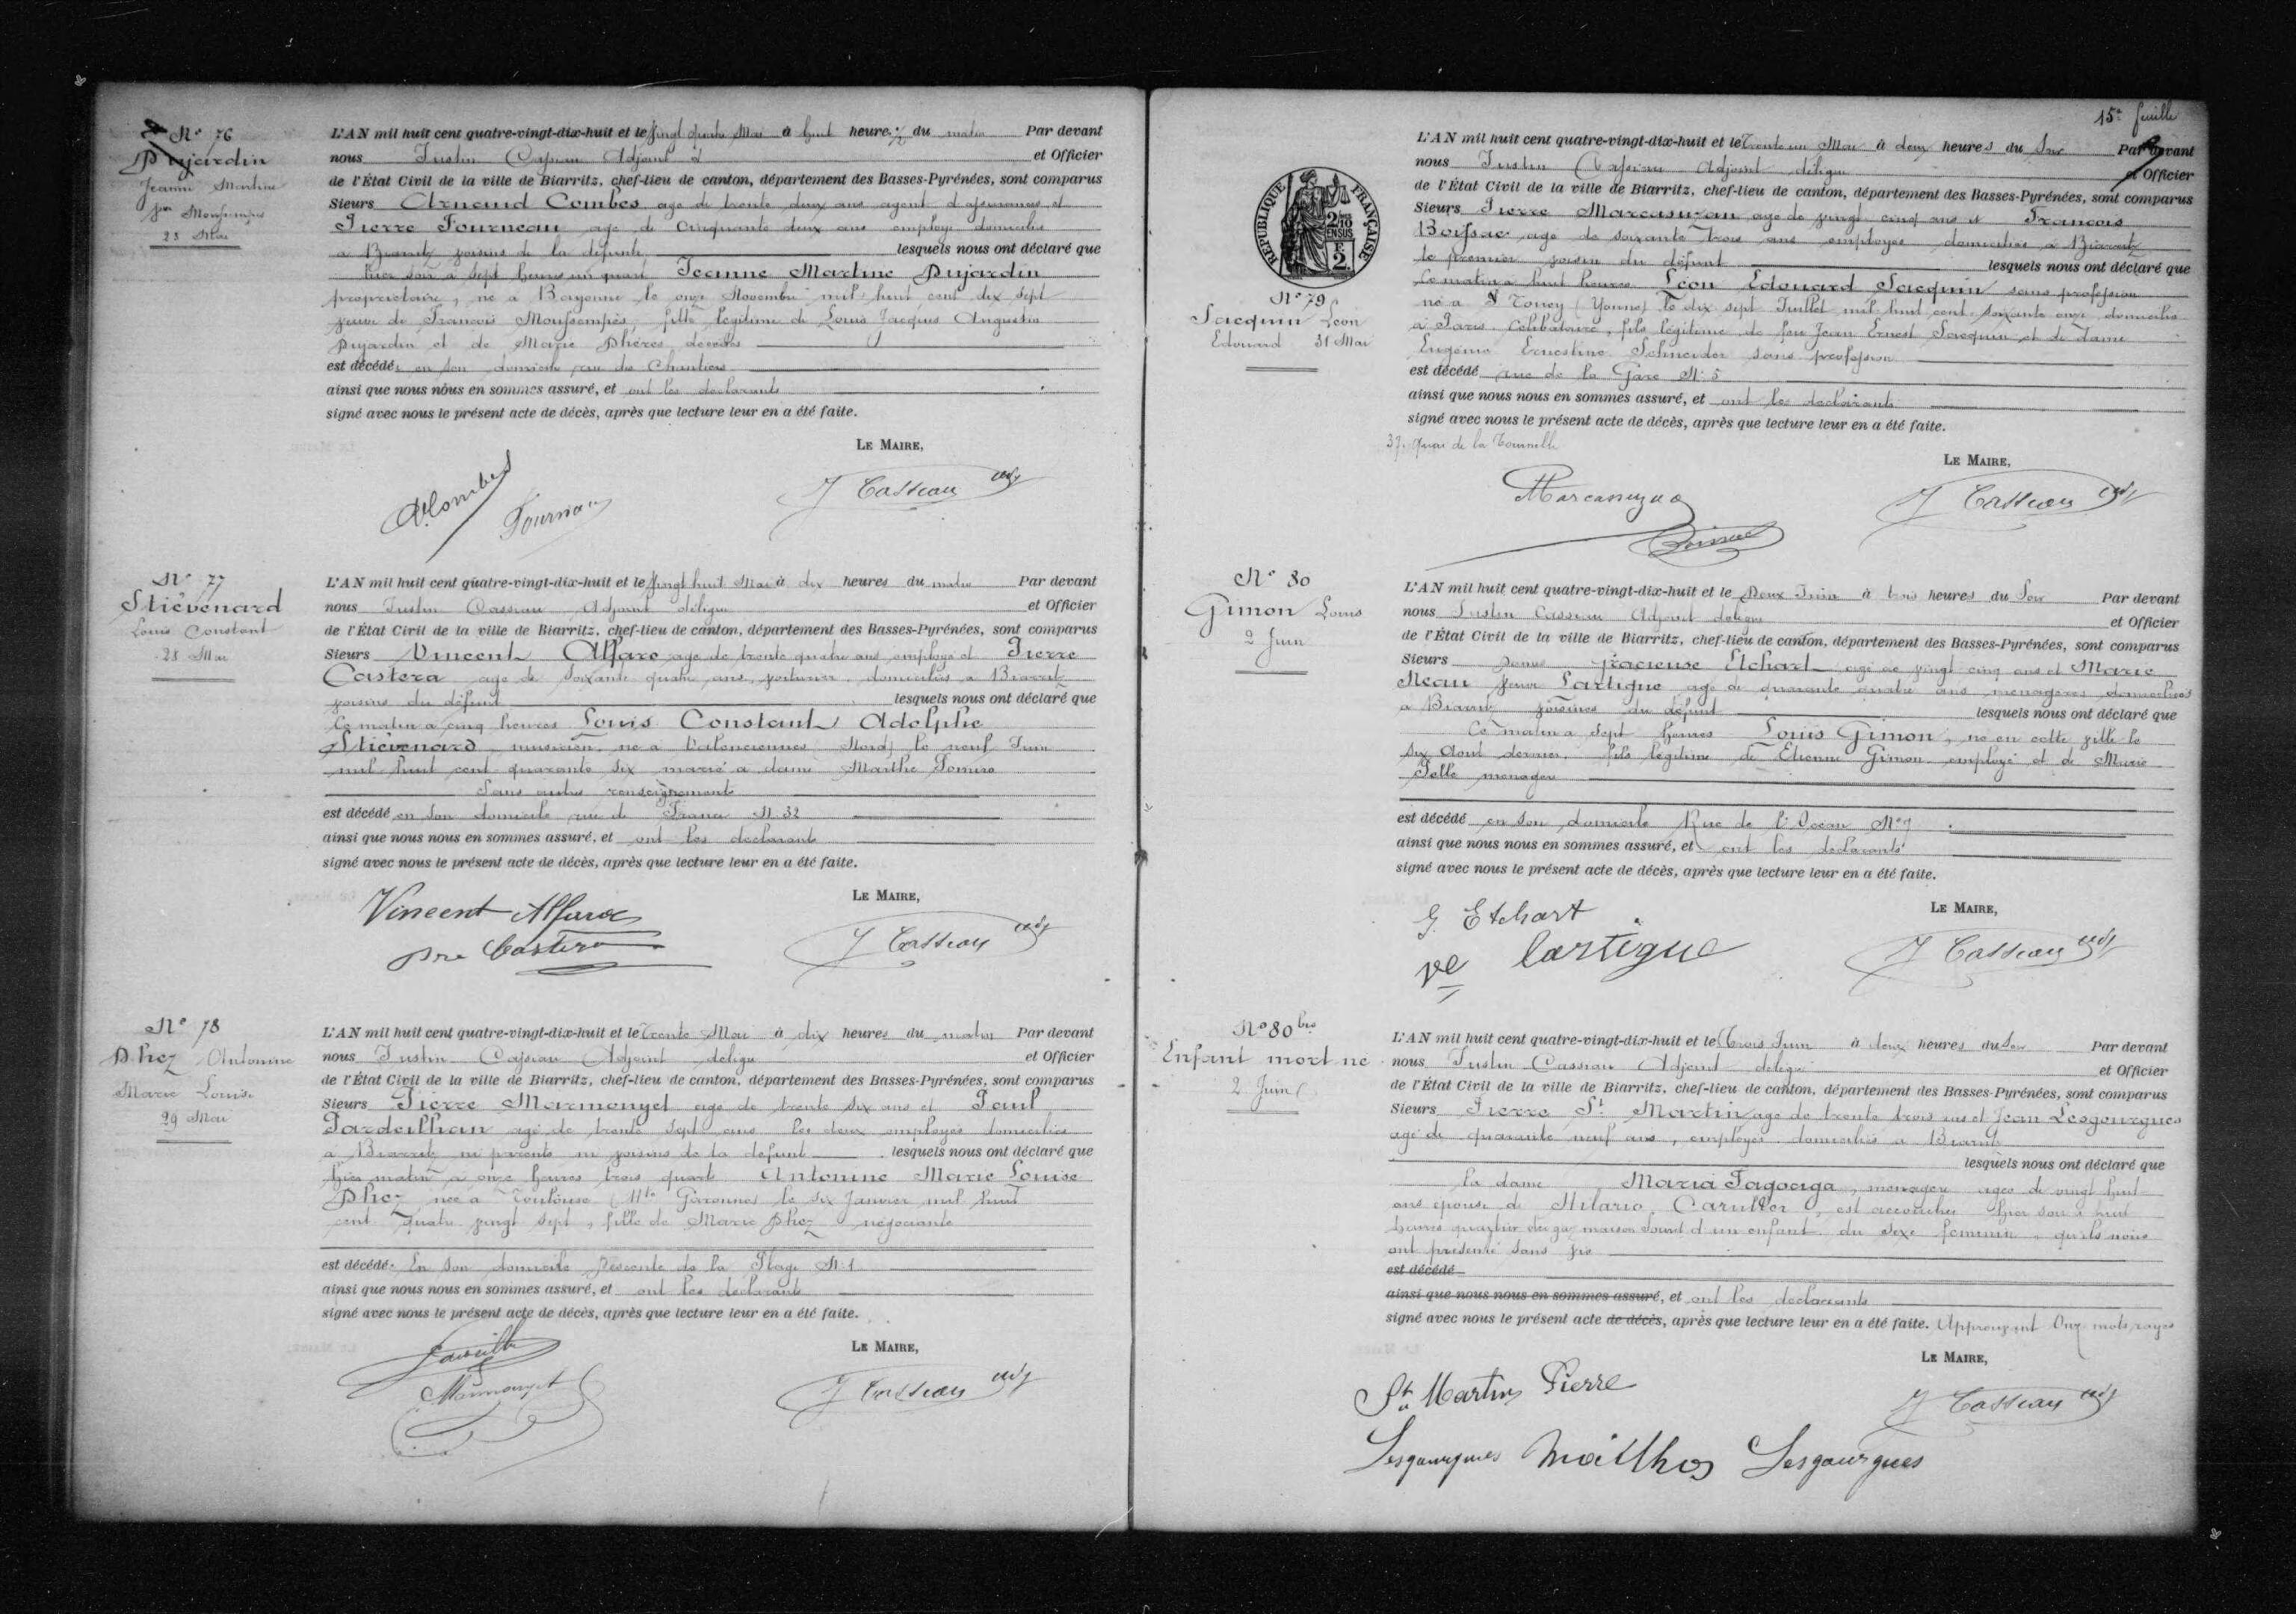 N° 76
Dujardin
Jeanne Martine
Vve Monsempès
23 Mai
L'AN mil huit cent quatre-vingt-dix-huit et le vingt quatre Mai à huit heures ½ du matin Par devant
nous Justin Cassiau Adjoint et Officier
de l'État Civil de la ville de Biarritz, chef-lieu de canton, département des Basses-Pyrénées, sont comparus
Sieurs Arnaud Combes age de trente deux ans agent d'assurances et
Pierre Fourneau age de cinquante deux ans employe domicilies
a Biarritz voisins de la défunte lesquels nous ont déclaré que
hier soir a sept heures un quart Jeanne Martine Dujardin
propriétaire, né a Bayonne le onze Novembre mil huit cent dix sept
veuve de Francois Monsempès, fille légitime de Louis Jacques Augustin
Dujardin et de Marie Dhères décédés
est décédée en son domicile rue des Chantiers
ainsi que nous nous en sommes assuré, et ont les declarants
signé avec nous le présent acte de décès, après que lecture leur en a été faite.
LE MAIRE,
A Combes
Fourneau
J Cassiau adj
N° 77
Stiévenard
Louis Constant
28 Mai
L'AN mil huit cent quatre-vingt-dix-huit et le vingt huit Mai à dix heures du matin Par devant
nous Justin Cassiau Adjoint délégué et Officier
de l'État Civil de la ville de Biarritz, chef-lieu de canton, département des Basses-Pyrénées, sont comparus
Sieurs Vincent Alfaro age de trente quatre ans employé et Pierre
Castera age de soixante quatre ans, voiturier, domiciliés a Biarritz
voisins du défunt lesquels nous ont déclaré que
Ce matin a cinq heures Louis Constant Adolphe
Stiévenard, musicien né a Valenciennes (Nord) le neuf Juin
mil huit cent quarante six marié a dame Marthe
Sans autres renseignements
est décédé en son domicile rue de France N. 32
ainsi que nous nous en sommes assuré, et ont les declarants
signé avec nous le présent acte de décès, après que lecture leur en a été faite.
LE MAIRE,
Vincent Alfaro
Pre Castera
J Cassiau adj
N° 78
Dhez Antonine
Marie Louise
29 Mai
L'AN mil huit cent quatre-vingt-dix-huit et le trente Mai à dix heures du matin Par devant
nous Justin Cassiau Adjoint délégué et Officier
de l'État Civil de la ville de Biarritz, chef-lieu de canton, département des Basses-Pyrénées, sont comparus
Sieurs Pierre Marmouyet age de trente six ans et Paul
Pardeilhan agé de trente sept ans les deux employés domiciliés
a Biarritz ni parents ni voisins de la defunte lesquels nous ont déclaré que
hier matin a onze heures trois quarts Antonine Marie Louise
Dhez née a Toulouse (Hte Garonne) le six Janvier mil huit
cent quatre vingt sept, fille de Marie Dhez négociante
est décédé En son domicile Descente de la Plage N. 1
ainsi que nous nous en sommes assuré, et ont les declarants
signé avec nous le présent acte de décès, après que lecture leur en a été faite.
LE MAIRE,
Marmouyet
J Cassiau adj
15e feuille
RÉPUBLIQUE FRANÇAISE
2/10 EN SUS
N° 79
Jacquin Léon
Edouard 31 Mai
L'AN mil huit cent quatre-vingt-dix-huit et le trente un Mai à deux heures du Soir Par devant
nous Justin Cassiau Adjoint délégué et Officier
de l'État Civil de la ville de Biarritz, chef-lieu de canton, département des Basses-Pyrénées, sont comparus
Sieurs Pierre Marcasuzau age de vingt cinq ans et Francois
Boissac age de soixante trois ans employés domiciliés a Biarritz
le premier voisin du défunt lesquels nous ont déclaré que
Ce matin a huit heures Léon Edouard Jacquin sans profession
né a Toucy (Yonne) le dix sept Juillet mil huit cent soixante onze domicilié
a Paris. Célibataire, fils légitime de feu Jean Ernest Jacquin et de dame
Eugénie Ernestine Schneider sans profession
est décédé rue de la Gare N. 5
ainsi que nous nous en sommes assuré, et ont les declarants
signé avec nous le présent acte de décès, après que lecture leur en a été faite.
37. Quai de la Tournelle
LE MAIRE,
Marcasuzaa
Boissac
J Cassiau adj
N° 80
Gimon Louis
2 Juin
L'AN mil huit cent quatre-vingt-dix-huit et le Deux Juin à trois heures du Soir Par devant
nous Justin Cassiau Adjoint délégué et Officier
de l'État Civil de la ville de Biarritz, chef-lieu de canton, département des Basses-Pyrénées, sont comparus
Sieurs Dame Gracieuse Etchart agé de vingt cinq ans et Marie
Neau veuve Lartigue age de quarante quatre ans menagères domiciliées
a Biarritz voisines du défunt lesquels nous ont déclaré que
Ce matin a sept heures Louis Gimon, né en cette ville le
six Aout dernier. fils légitime de Etienne Gimon employé et de Marie
Pelle menagere
est décédé en son domicile Rue de l'Ocean N° 7
ainsi que nous nous en sommes assuré, et ont les declarants
signé avec nous le présent acte de décès, après que lecture leur en a été faite.
LE MAIRE,
G Etchart
Ve Lartigue
J Cassiau adj
N° 80 bis
Enfant mort né
2 Juin
L'AN mil huit cent quatre-vingt-dix-huit et le trois Juin à deux heures du Soir Par devant
nous Justin Cassiau Adjoint délégué et Officier
de l'État Civil de la ville de Biarritz, chef-lieu de canton, département des Basses-Pyrénées, sont comparus
Sieurs Pierre St Martin age de trente trois ans et Jean Lesgourgues
agé de quarante neuf ans, employés domiciliés a Biarritz
lesquels nous ont déclaré que
la dame Maria Fagoaga, menagere agee de vingt huit
ans epouse de Hilario Caruller, est accouchée hier soir a huit
heures quartier du gaz maison d'un enfant du sexe feminin qu'ils nous
ont presenté sans vie
est décédé
ainsi que nous nous en sommes assuré, et ont les declarants
signé avec nous le présent acte de décès, après que lecture leur en a été faite. Approuvant Onze mots rayés
LE MAIRE,
St Martin Pierre
J Cassiau adj
Lesgourgues Lesgourgues